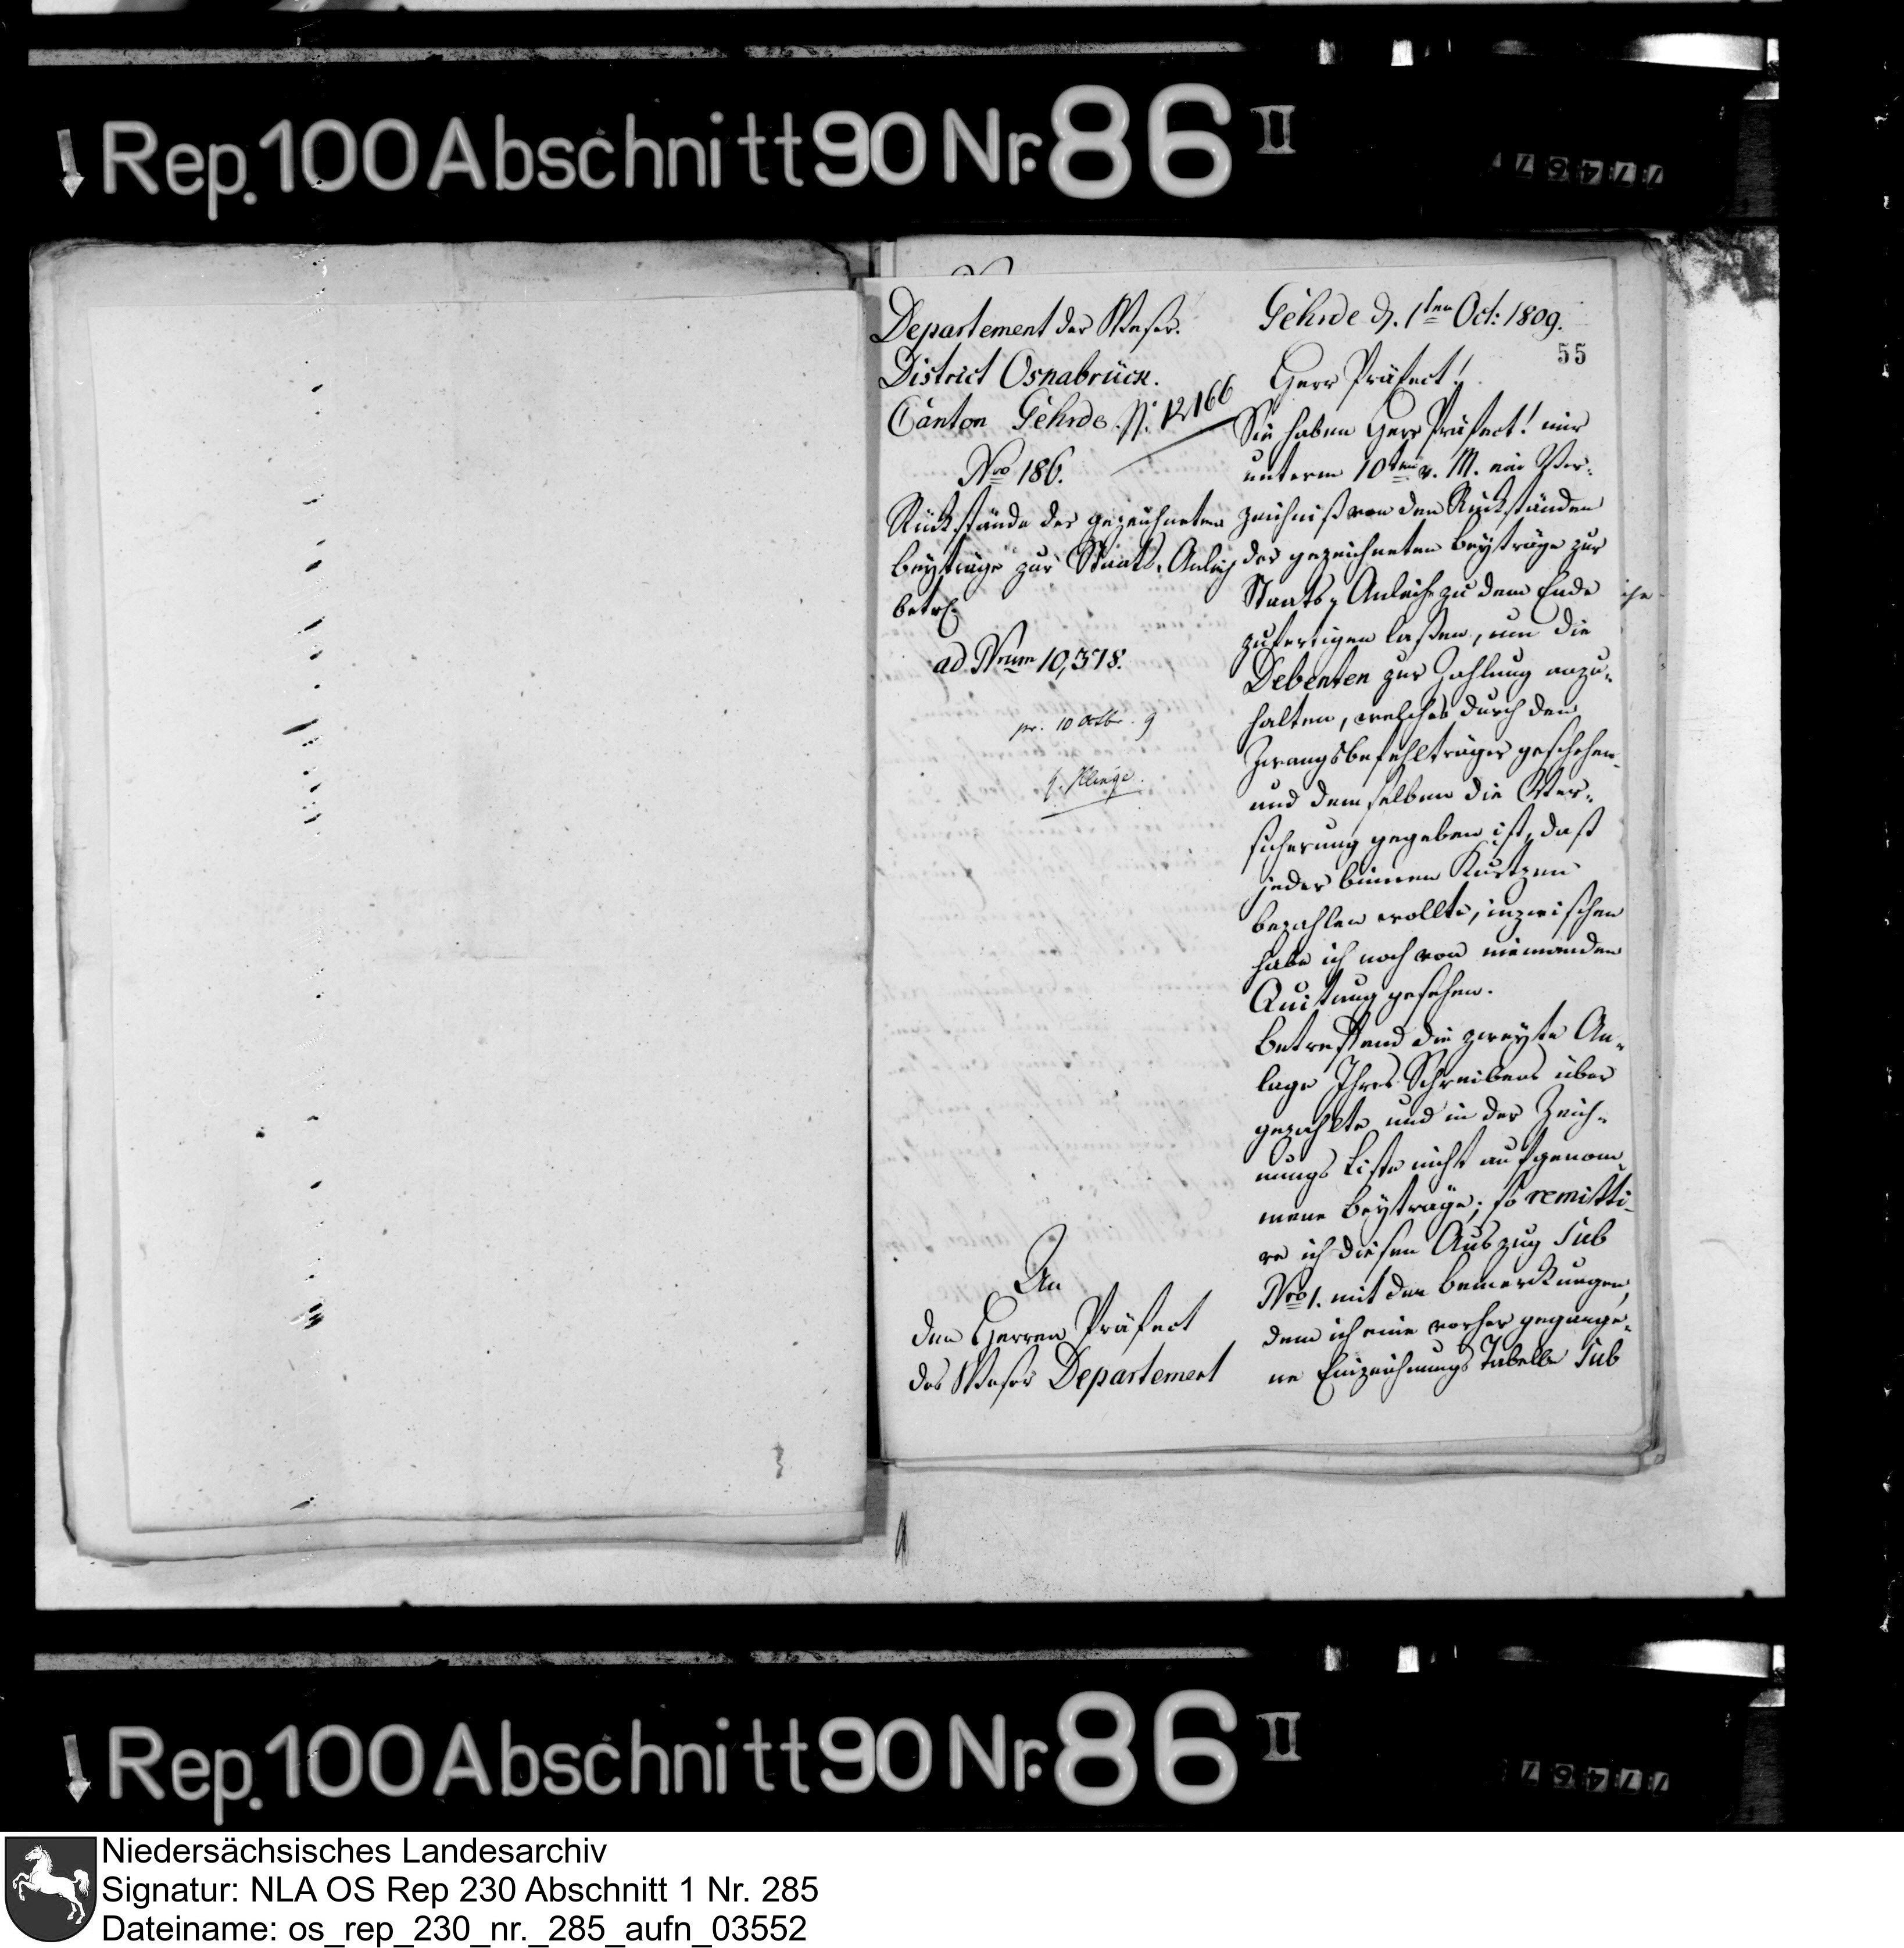 Rep. 100 Abschnitt 90 Nr. 86 II
77467
Departement der Weser.
District Osnabrück.
Canton Gehrde. N. 12166
Nro 186.
Rückstände der gezeichneten
Beyträge zur Staats-Anleihe
betrf.
ad Nrum 10,318.
pr. 10 Octbr. 9
Gehrde d. 1ten Oct: 1809.
55
Herr Präfect!
Sie haben Herr Präfect! mir
unterm 10ten v. M. ein Ver-
zeichniß von den Rückständen
der gezeichneten Beyträge zur
Staats-Anleihe zu dem Ende
zufertigen laßen, um die
Debenten zur Zahlung anzu-
halten, welches durch den
Zwangsbefehlträger geschehen
und demselben die Ver-
sicherung gegeben ist, daß
jeder binnen Kurtzen
bezahlen wollte, inzwischen
habe ich noch von niemanden
Quitung gesehen.
Betreffend die zweyte An-
lage Ihres Schreibens über
gezahlte und in der Zeich-
nungs Liste nicht aufgenom
mene Beyträge; so remitti-
re ich diesen Auszug sub
Nro 1. mit den Bemerkungen,
dem ich eine vorher gegange-
ne Einzeichnungs Tabelle sub
An
den Herren Präfect
des Weser Departement
Rep. 100 Abschnitt 90 Nr. 86 II
77467
Niedersächsisches Landesarchiv
Signatur: NLA OS Rep 230 Abschnitt 1 Nr. 285
Dateiname: os_rep_230_nr._285_aufn_03552